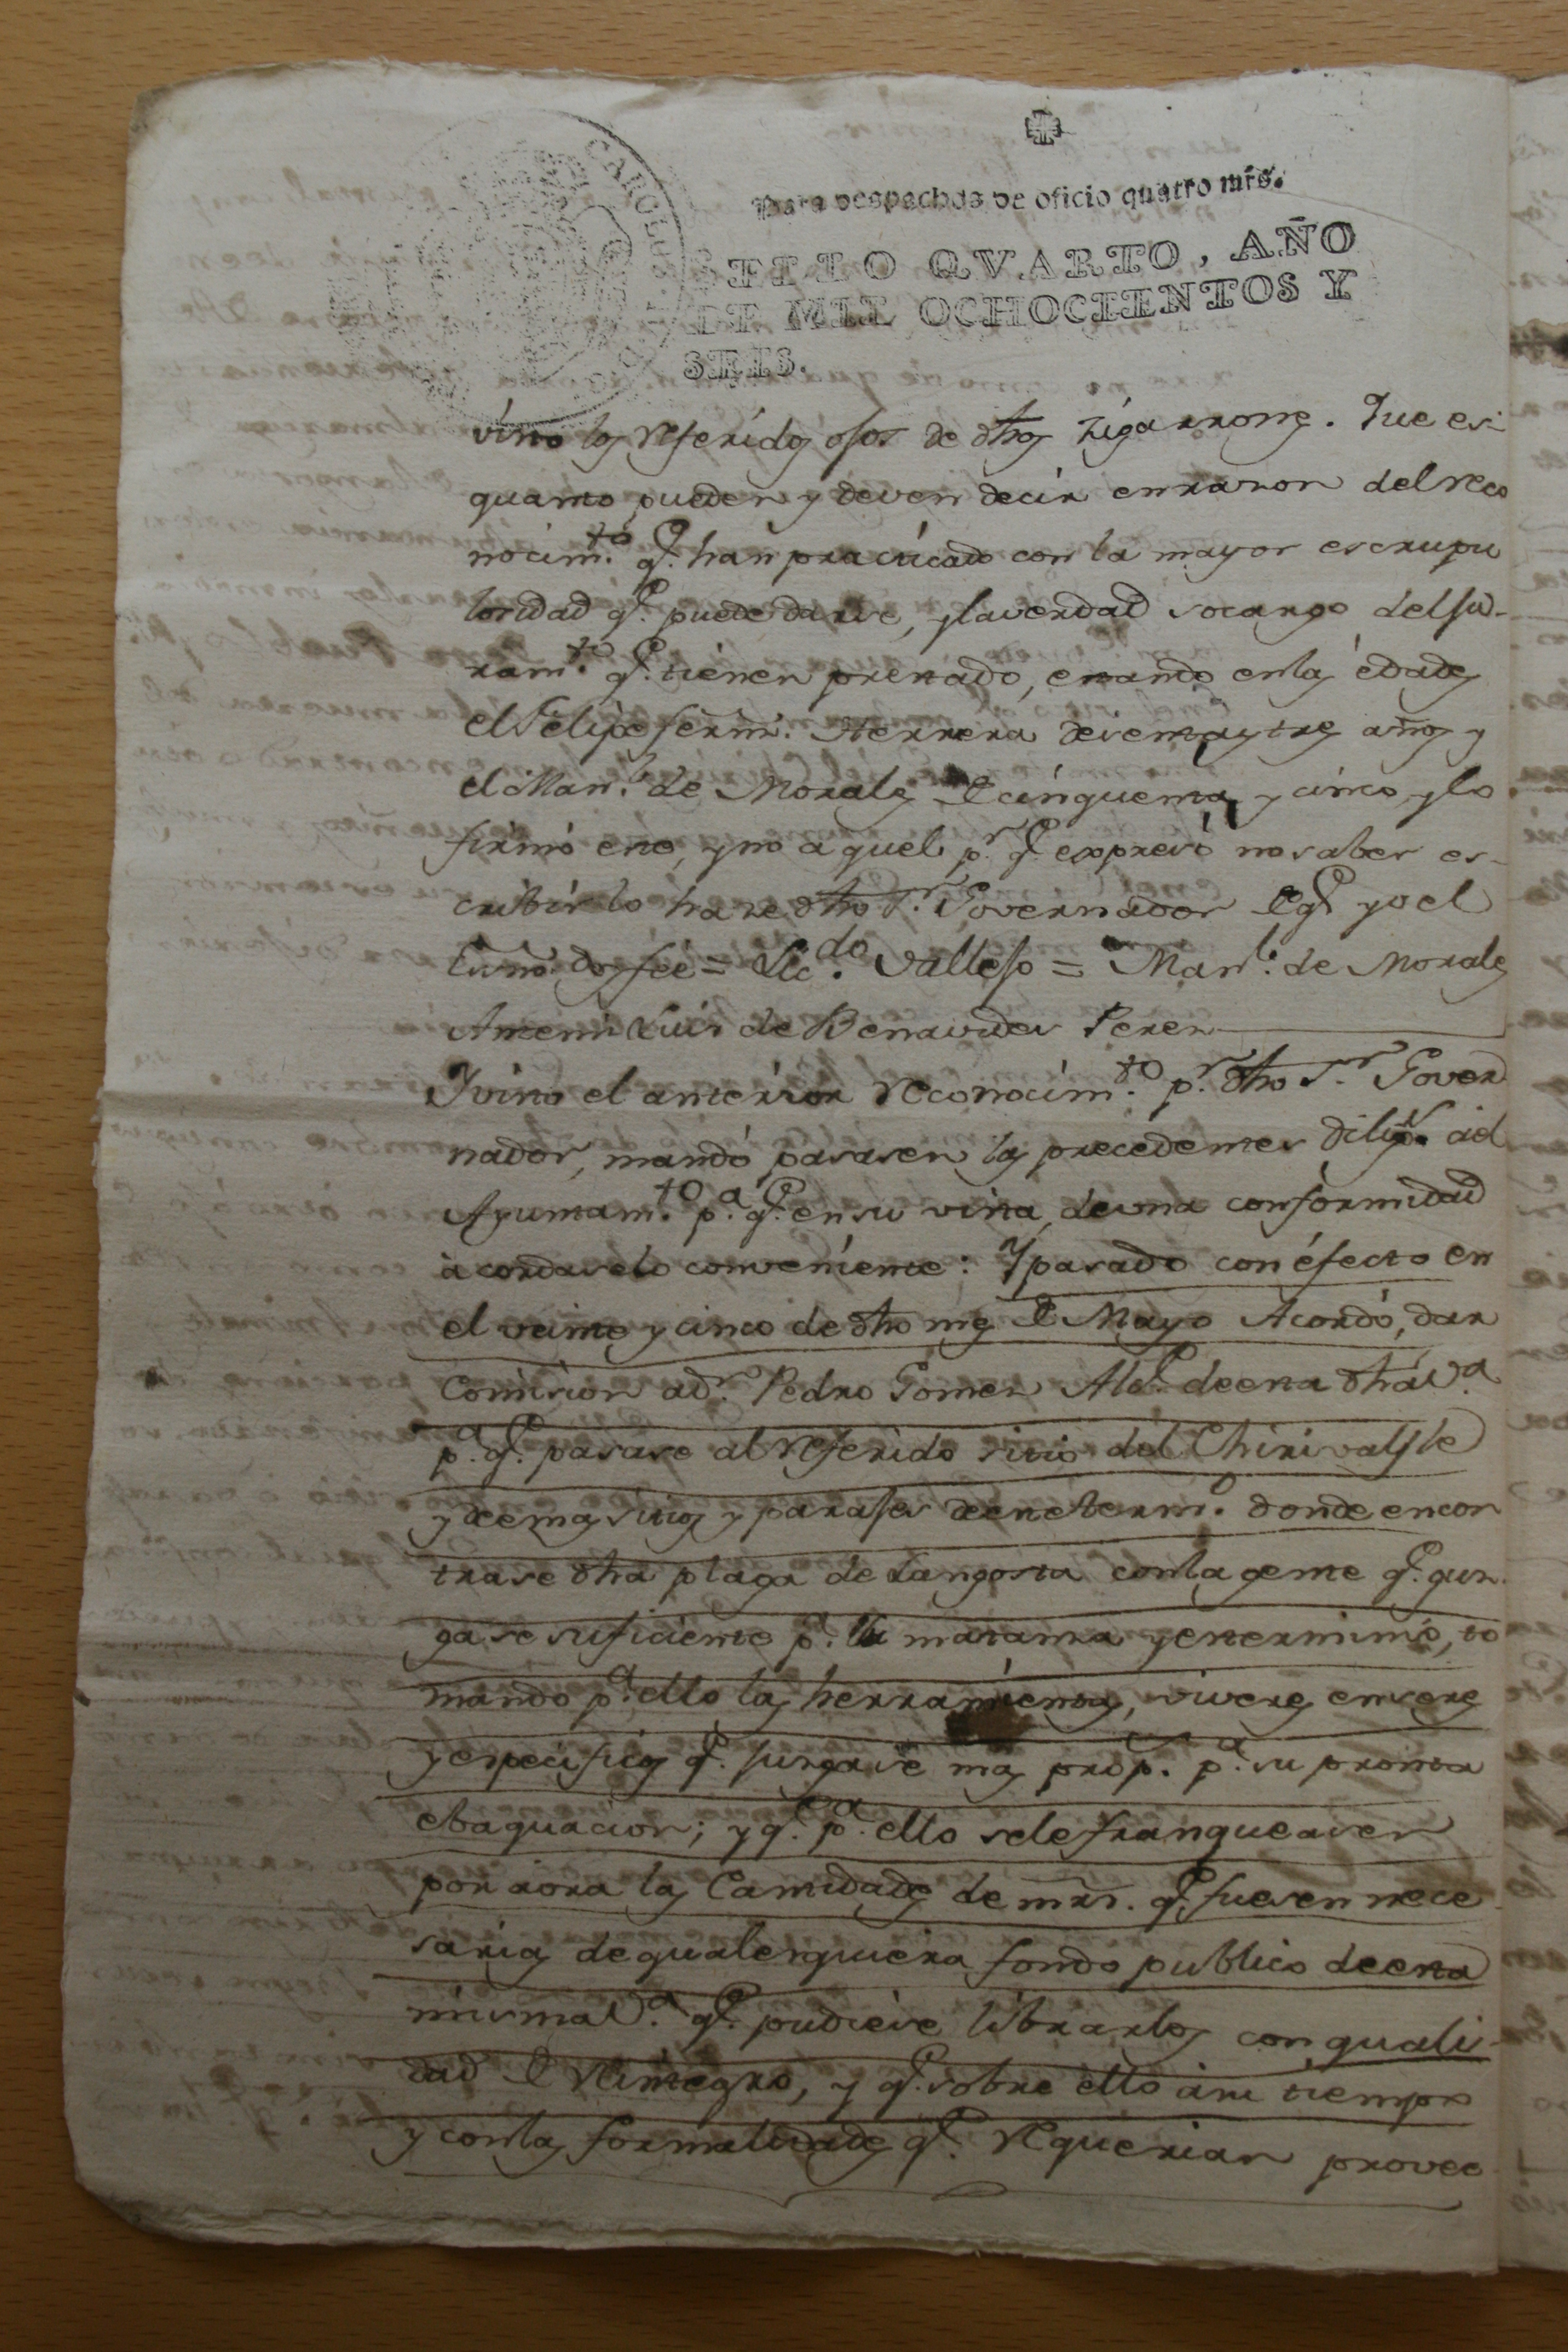 CAROLUS
Para despachos de oficio quatro mrs.
SELLO QVARTO, AÑO
DE MIL OCHOCIENTOS Y
SEIS.
visto los referidos ojos de dhos zigarrones. Que es
quanto pueden y deven decir en razon del reco
nocim.to q.e han practicado con la mayor escrupu
losidad q.e puede darse, y la verdad so cargo del ju-
ram.to q.e tienen prestado, estando en las edades
el Felipe Herrera de setenta y tres años y
el Man.l de Morales de cinquenta y cinco, y lo
firmó este, y no aquel p.r q.e expresó no saber es-
cribir lo hace dho S.r Governador de q.e yo el
Essno. doy fee = Lic.do Vallejo = Man.l de Morales
Ante mi Luis de Benavides Perez
Y visto el anterior reconocim.to p.r dho S.r Gover
nador, mandó pasasen las precedentes dilig.s al
Ayuntam.to p.a q.e en su vista, de una conformidad
acordase lo conveniente: Y pasado con efecto en
el veinte y cinco de dho mes de Mayo Acordó, dar
Comision a d.n Pedro Gomez Alc.e de esta dha V.a
p.a q.e pasase al referido sitio del Chirivalfle
y demas sitios y parajes de este term.o donde encon
trase dha plaga de Langosta con la gente q.e juz
gase suficiente p.a la matanza y exterminio, to
mando p.a ello las herramientas, viveres enseres
y especificos q.e juzgase mas prop.s p.a su pronta
ebaquacion; y q.e p.a ello se le franqueasen
por aora las Cantidades de mrs. q.e fuesen nece
sarias de qualesquiera fondo publico de esta
misma V.a q.e pudiese librarlos con quali-
dad de reintegro, y q.e sobre ello a su tiempo
y con las formalidades q.e requerian provee